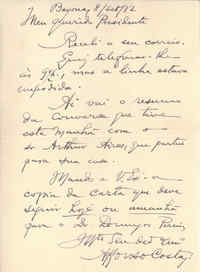 Meu querido Presidente
Recebi o seu correio.
Quiz telegrafar-lhe
às 9 h, mas a linha estava
impedida.
Ahi vai o resumo
da conversa que tive
esta manhã com o
sr Arthur Aires, que partiu
para sua casa.
Mando a V. Ex. a
copia da carta que deve
seguir hoje ou amanhã
para o Dr Domingos
Affonso Costa